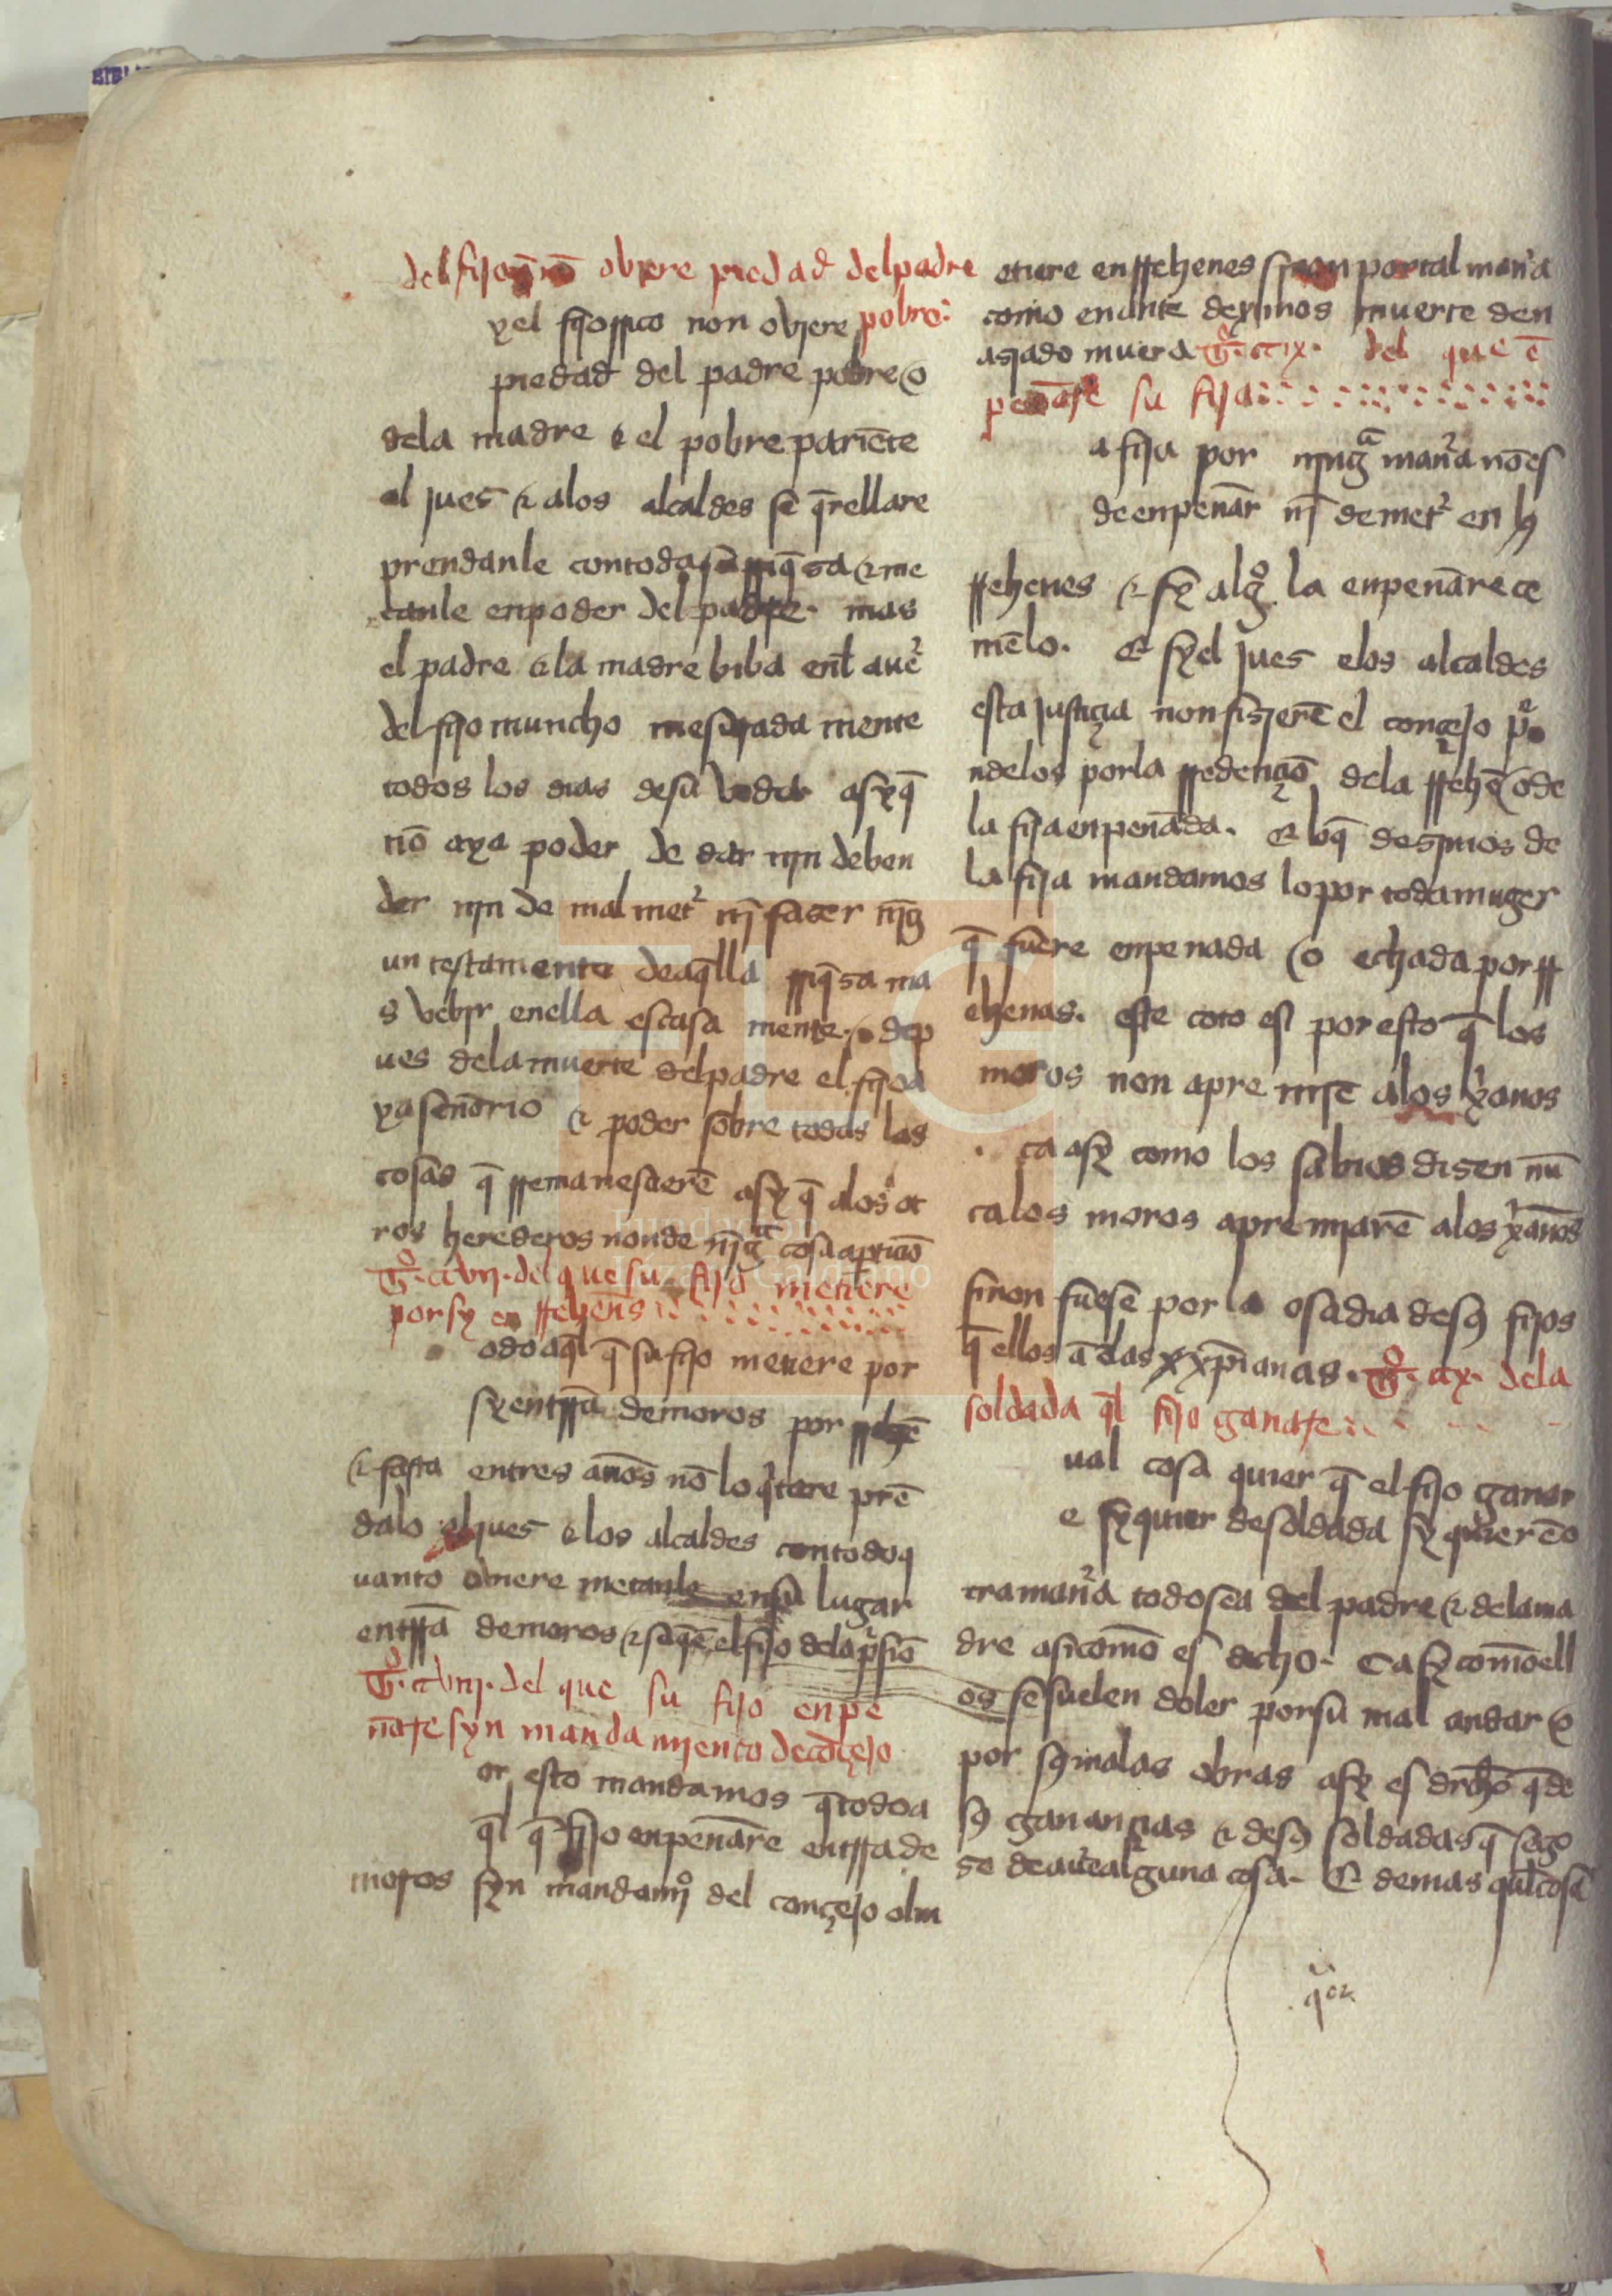 del fijo q̄ nō obiere piedad del padre
pobre:
y el fijo rrico non obiere
piedad del padre pobre o
dela madre & el pobre pariēte
al jues & alos alcaldes se q̄rellare
prendanle contoda su rriq̄sa & me
tanle enpoder del padre. mas
el padre & la madre biba enl auer
del fijo muncho mesurada mente
todos los dias desu vida asy q̄
nō aya poder de dar njn deben
der njn de mal met̉ nj̄ faser nj̄g
un testamento deaq̄lla rriq̄sa ma
s vebir enella escasa mente. dep
ues dela muerte del padre el fijo a
ya señorio & poder sobre todas las
cosas q̄ rremanesçierē asy q̄ alos ot
ros herederos nonde nj̄gª cosa
Tº. cc vij. del que su fijo metiere
por sy en rrehenes
odo aq̄l q̄ su fijo metiere por
sy entrrā demoros por rrehē
& fasta entres años nō lo q̇tare prē
dalo el jues & los alcaldes contodo q
uanto oviere metanle ensu lugar
entrrā demoros & saq̄ē el fijo dela ṗsiō
Tº. cc viij. del que su fijo enpe
ñare syn manda mjento decōçejo
or esto mandamos q̄ todo a
q̄l q̄ fijo enpeñare entrra de
moros syn mandamjº del conçejo olm
etiere enrrehenes synon por tal man̉a
como enante deximos muerte den
asiado muera Tº. cc ix. del que ē
peñare su fija
a fija por njngª man̉a nō es
deenpeñar nj̄ demet̉ en
rrehenes & sy algº la enpeñare çe
mēlo. & sy el jues & los alcaldes
esta justiçia non fisjerē el conçejo pͤ
ndelos por la rredençiō dela rrehē o de
la fija enpeñada. & lo q̄ desimos de
la fija mandamos lo por toda muger
q̄ fuere enpeñada o echada por rr
ehenas. este coto es por esto q̄ los
moros non apre mjsē alos xͥanos
. ca asy como los sabios disen nū
ca los moros apremjarē alos xͥanos
sinon fuesē por la osadia desus fijos
q̄ ellos ā delas xp̄ianas. Tº. cc x. dela
soldada q̄l fijo ganare
ual cosa quier q̄ el fijo ganar
e syquier desoldada sy quier eō
tra man̉a todo sea del padre & dela ma
dre asi como es dicho. Ca sy como ell
os sesuelen doler porsu mal andar o
por sus malas obras asy es drcho q̄ de
sus ganançias & desus soldadas q̄ sego
so deauer alguna cosa. E demas q̄lcosa
qͥer
Fundación
Lázaro Galdiano